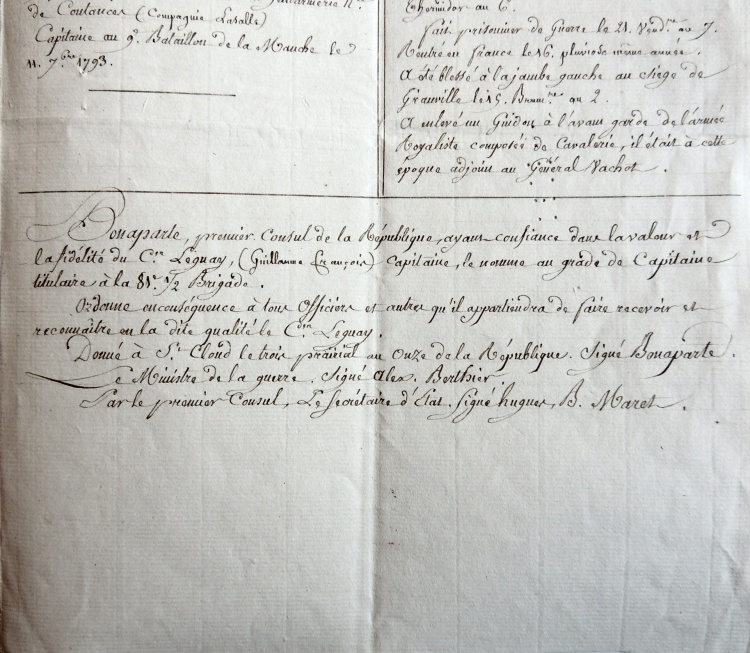 Gendarmerie N.le
de Coutances (Compagnie Lasalle)
Capitaine au 9.e Bataillon de la Manche le
11. 7.bre 1793.
Thermidor an 6.
fait prisonnier de Guerre le 21. Vend.re an 7.
Rentré en france le 16. pluviose même année.
A été blessé à la jambe gauche au siège de
Granville le 15. Brum.re an 2.
A enlevé un Guidon à l'avant garde de l'armée
Royaliste composée de Cavalerie, il était à cette
époque adjoint au Général Vachot.
Bonaparte, premier Consul de la République, ayant confiance dans la valeur et
la fidélité du C.en Leguay, (Guillaume François) Capitaine, le nomme au grade de Capitaine
titulaire à la 81.e 1/2 Brigade.
Ordonne en conséquence à tous Officiers et autres qu'il appartiendra de faire recevoir et
reconnaître en la dite qualité le C.en Leguay.
Donné à S.t Cloud le trois prairial an Onze de la République. Signé Bonaparte.
Le Ministre de la guerre. Signé Alex. Berthier
Par le premier Consul, Le Secrétaire d'Etat. Signé hugues, B. Maret.